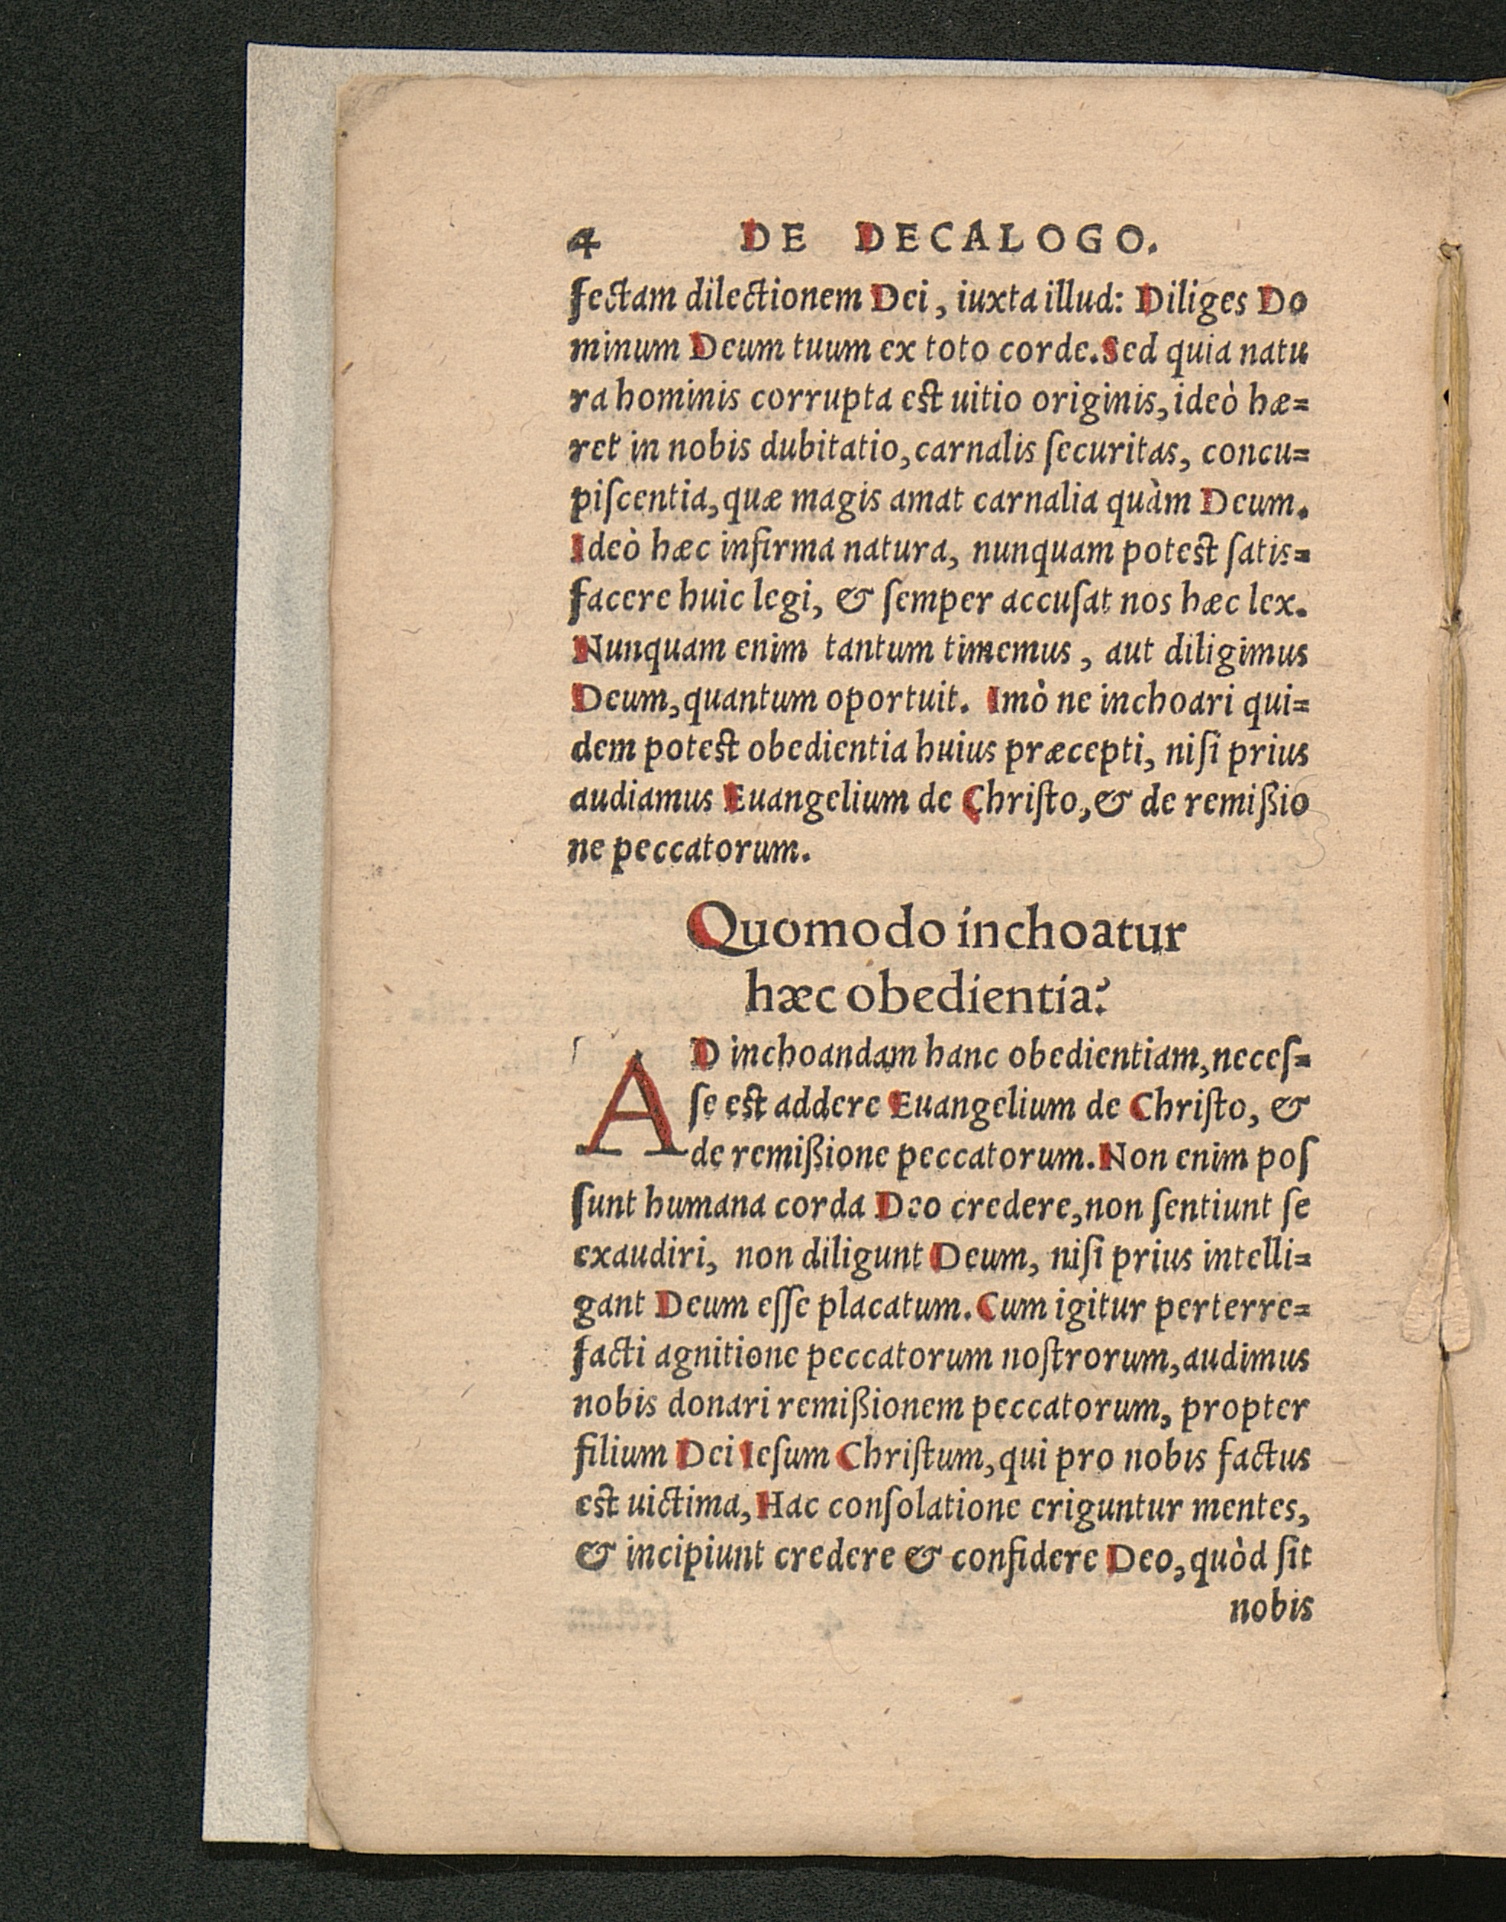 4 DE DECALOGO.
fectam dilectionem Dei, iuxta illud: Diliges Do
minum Deum tuum ex toto corde. Sed quia natu
ra hominis corrupta est uitio originis, ideò hæ=
ret in nobis dubitatio, carnalis ſecuritas, concu=
piſcentia, quæ magis amat carnalia quàm Deum.
Ideò hæc infirma natura, nunquam potest ſatis=
facere huic legi, & ſemper accuſat nos hæc lex.
Nunquam enim tantum timemus, aut diligimus
Deum, quantum oportuit. Imò ne inchoari qui=
dem potest obedientia huius præcepti, niſi prius
audiamus Euangelium de Chriſto, & de remißio
ne peccatorum.
Quomodo inchoatur
hæc obedientia?
AD inchoandam hanc obedientiam, neceſ=
ſe est addere Euangelium de Chriſto, &
de remißione peccatorum. Non enim poſ
ſunt humana corda Deo credere, non ſentiunt ſe
exaudiri, non diligunt Deum, niſi prius intelli=
gant Deum eſſe placatum. Cum igitur perterre=
facti agnitione peccatorum noſtrorum, audimus
nobis donari remißionem peccatorum, propter
filium Dei Ieſum Chriſtum, qui pro nobis factus
est uictima, Hac conſolatione eriguntur mentes,
& incipiunt credere & confidere Deo, quòd ſit
nobis